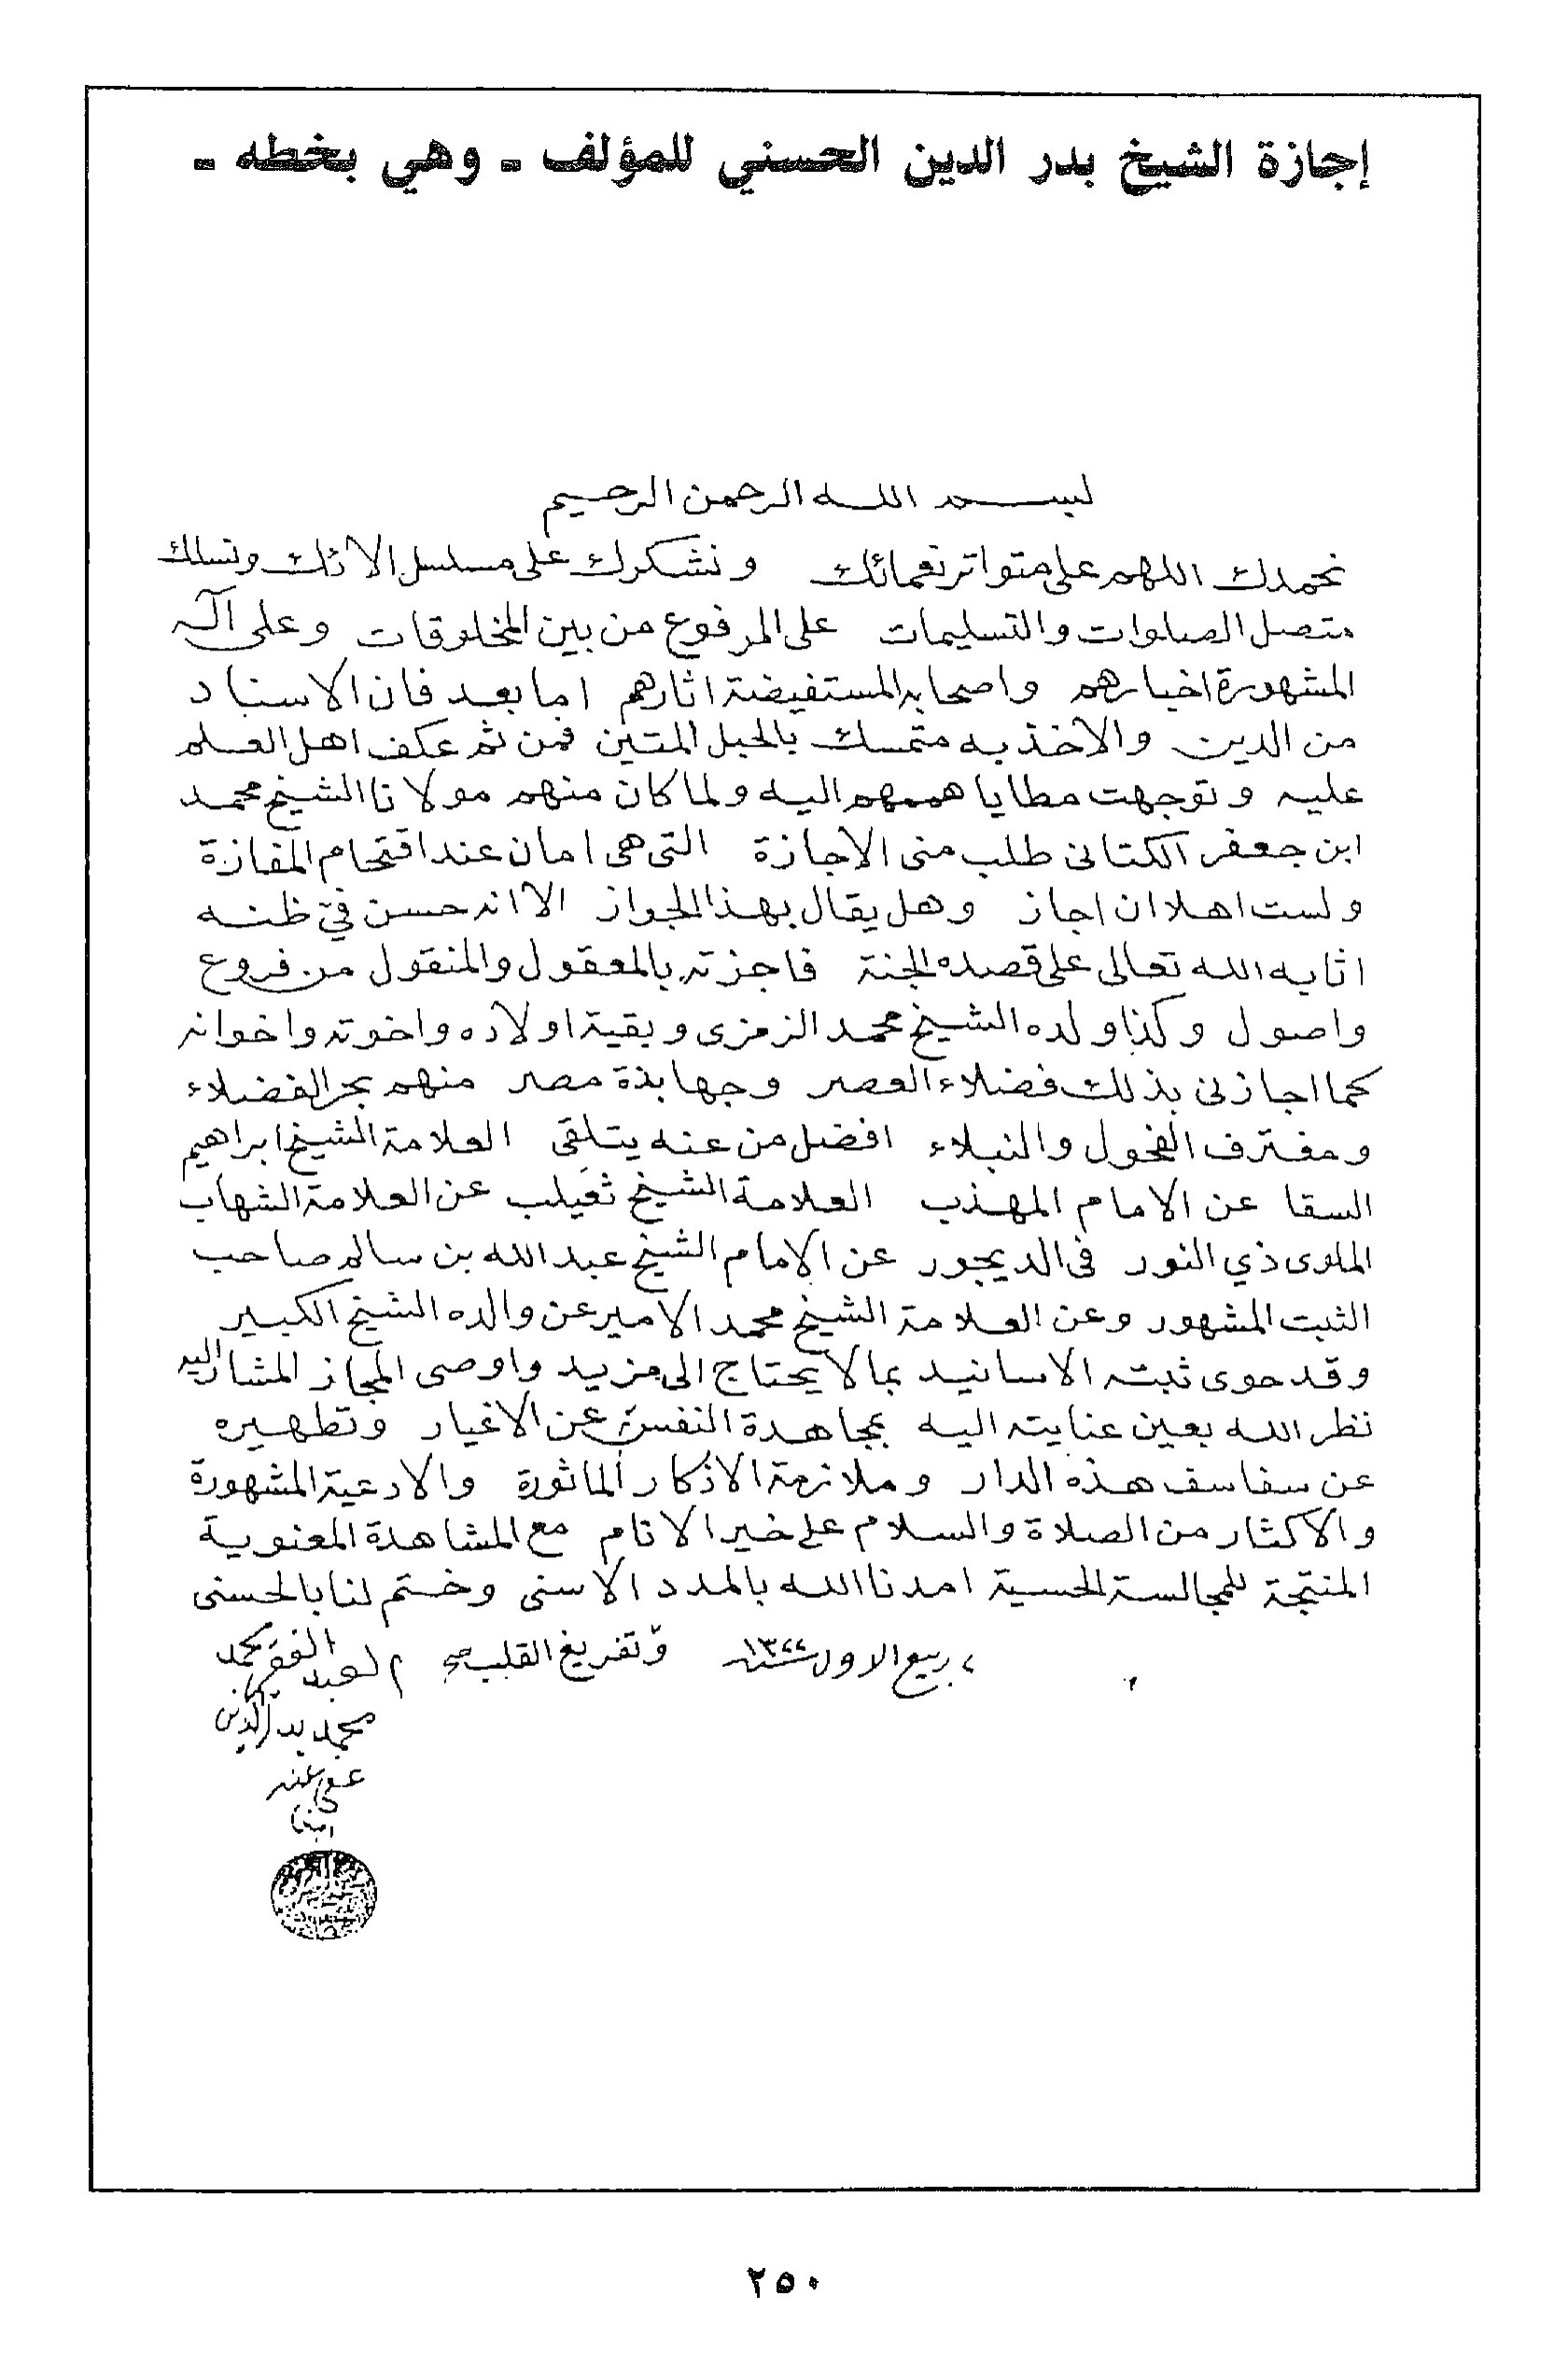 إجازة الشيخ بدر الدين الحسني للمؤلف - وهي بخطه -
بسم الله الرحمن الرحيم
نحمدك اللهم على متواتر نعمائك ونشكرك على مسلسل الائك ونسلك
متصل الصلوات والتسليمات على المرفوع من بين المخلوقات وعلى آله
المشهورة اخبارهم واصحابه المستفيضة اثارهم اما بعد فان الاسناد
من الدين والاخذ به متمسك بالحبل المتين فمن ثم عكف اهل العلم
عليه وتوجهت مطايا هممهم اليه ولما كان منهم مولانا الشيخ محمد
ابن جعفر الكتانى طلب منى الاجازة التى هى امان عند اقتحام المفازة
ولست اهلا ان اجاز وهل يقال بهذا الجواز الا انه حسن فيّ ظنه
اثابه الله تعالى على قصده الجنة فاجزته بالمعقول والمنقول من فروع
واصول وكذا ولده الشيخ محمد الزمزى وبقية اولاده واخوته واخوانه
كما اجازنى بذلك فضلاء العصر وجهابذة مصر منهم بحر الفضلاء
ومغترف الفحول والنبلاء افضل من عنه يتلقى العلامة الشيخ ابراهيم
السقا عن الامام المهذب العلامة الشيخ ثعيلب عن العلامة الشهاب
الملوى ذي النور فى الديجور عن الامام الشيخ عبد الله بن سالم صاحب
الثبت المشهور وعن العلامة الشيخ محمد الامير عن والده الشيخ الكبير
وقد حوى ثبته الاسانيد بما لا يحتاج الى مزيد واوصى المجاز المشار اليه
نظر الله بعين عنايته اليه بمجاهدة النفس عن الاغيار وتطهيره
عن سفاسف هذه الدار وملازمة الاذكار المأثورة والادعية المشهورة
والاكثار من الصلاة والسلام على خير الانام مع المشاهدة المعنوية
المنتجة للمجالسة الحسية امدنا الله بالمدد الاسنى وختم لنا بالحسنى
ربيع الاول سنة ١٣٢٢ وتفريغ القلب صح العبد الفقير
محمد بدر الدين
عفى عنه
٢٥٠